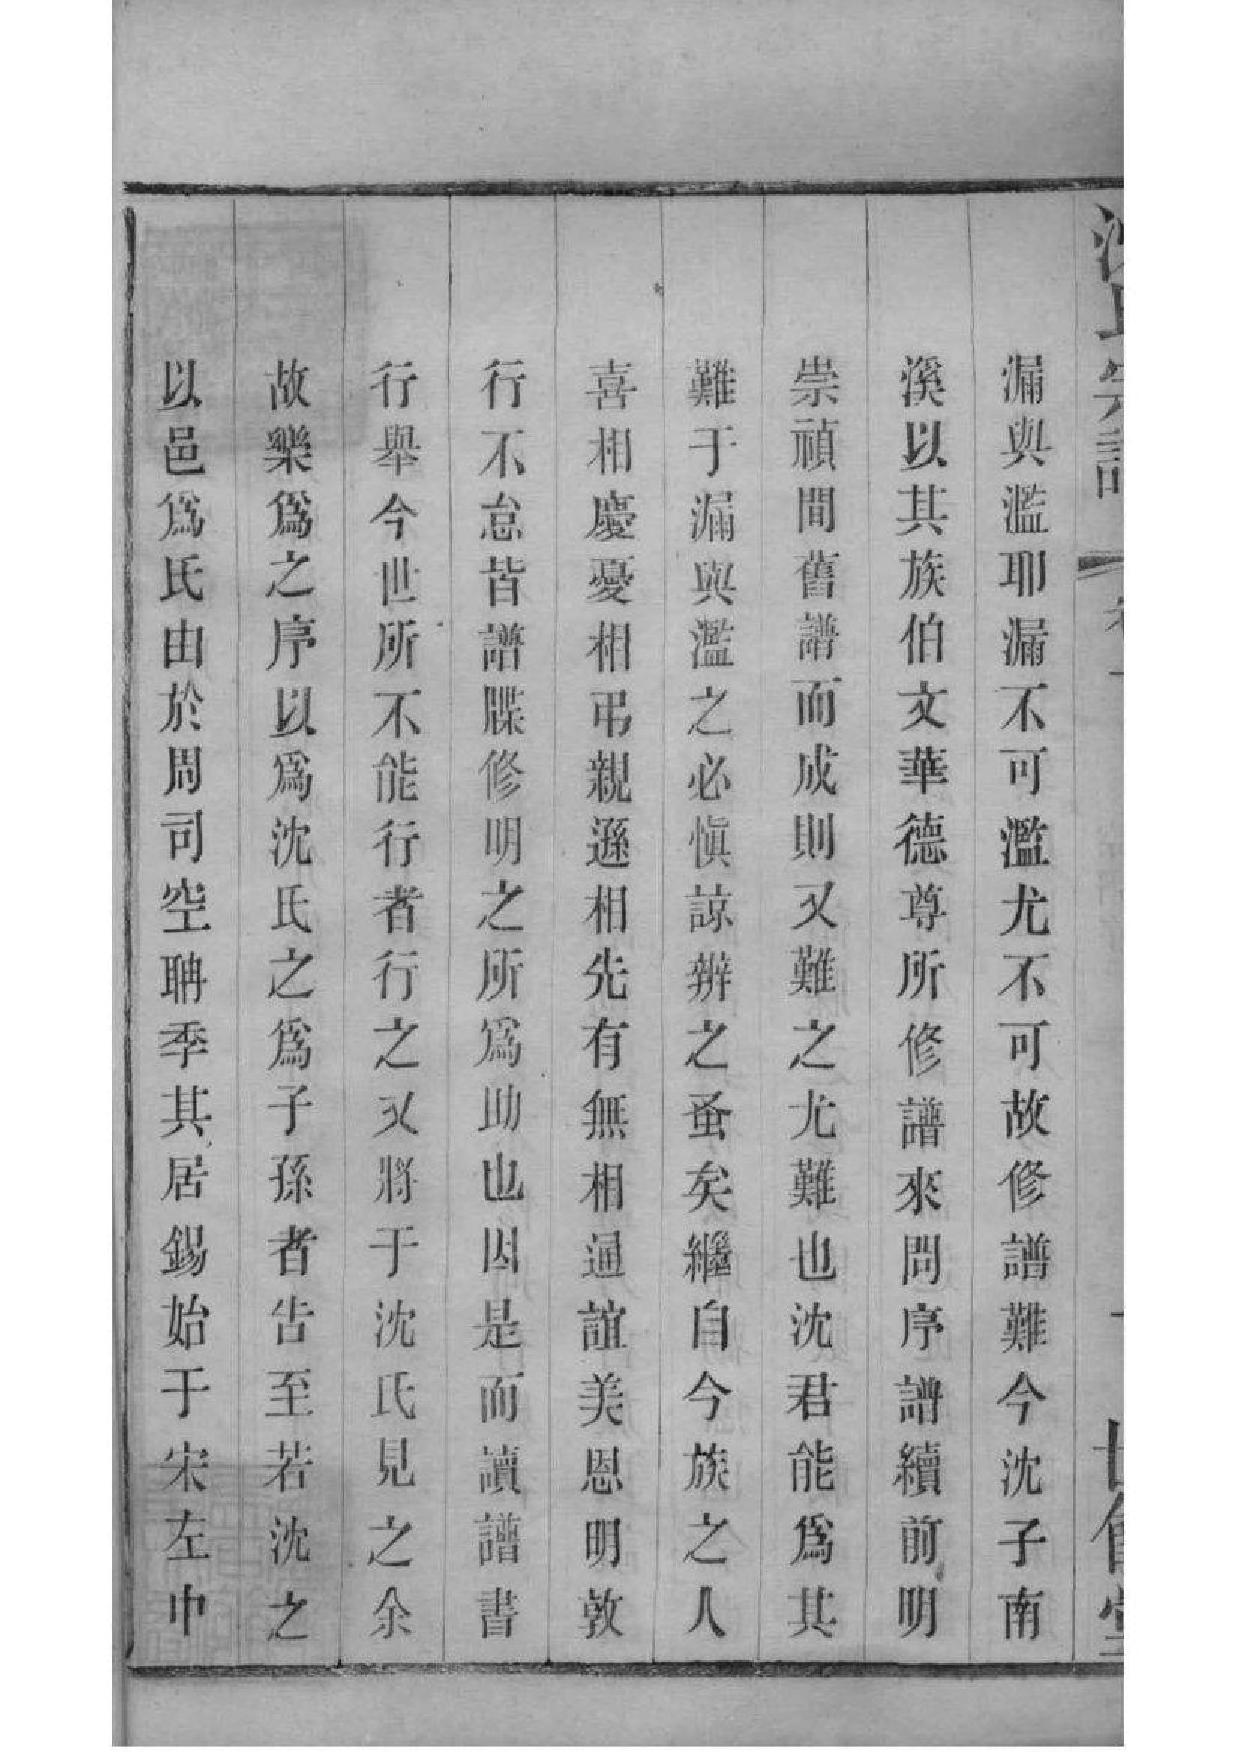 沈氏宗譜 卷一 一 世賢堂
漏與濫耶漏不可濫尤不可故修譜難今沈子南
溪以其族伯文華德尊所修譜來問序譜續前明
崇禎間舊譜而成則又難之尤難也沈君能爲其
難于漏與濫之必愼諒辨之蚤矣繼自今族之人
喜相慶憂相弔親遜相先有無相通誼美恩明敦
行不怠皆譜牒修明之所爲助也因是而讀譜書
行舉今世所不能行者行之又將于沈氏見之余
故樂爲之序以爲沈氏之爲子孫者告至若沈之
以邑爲氏由於周司空聃季其居錫始于宋左中